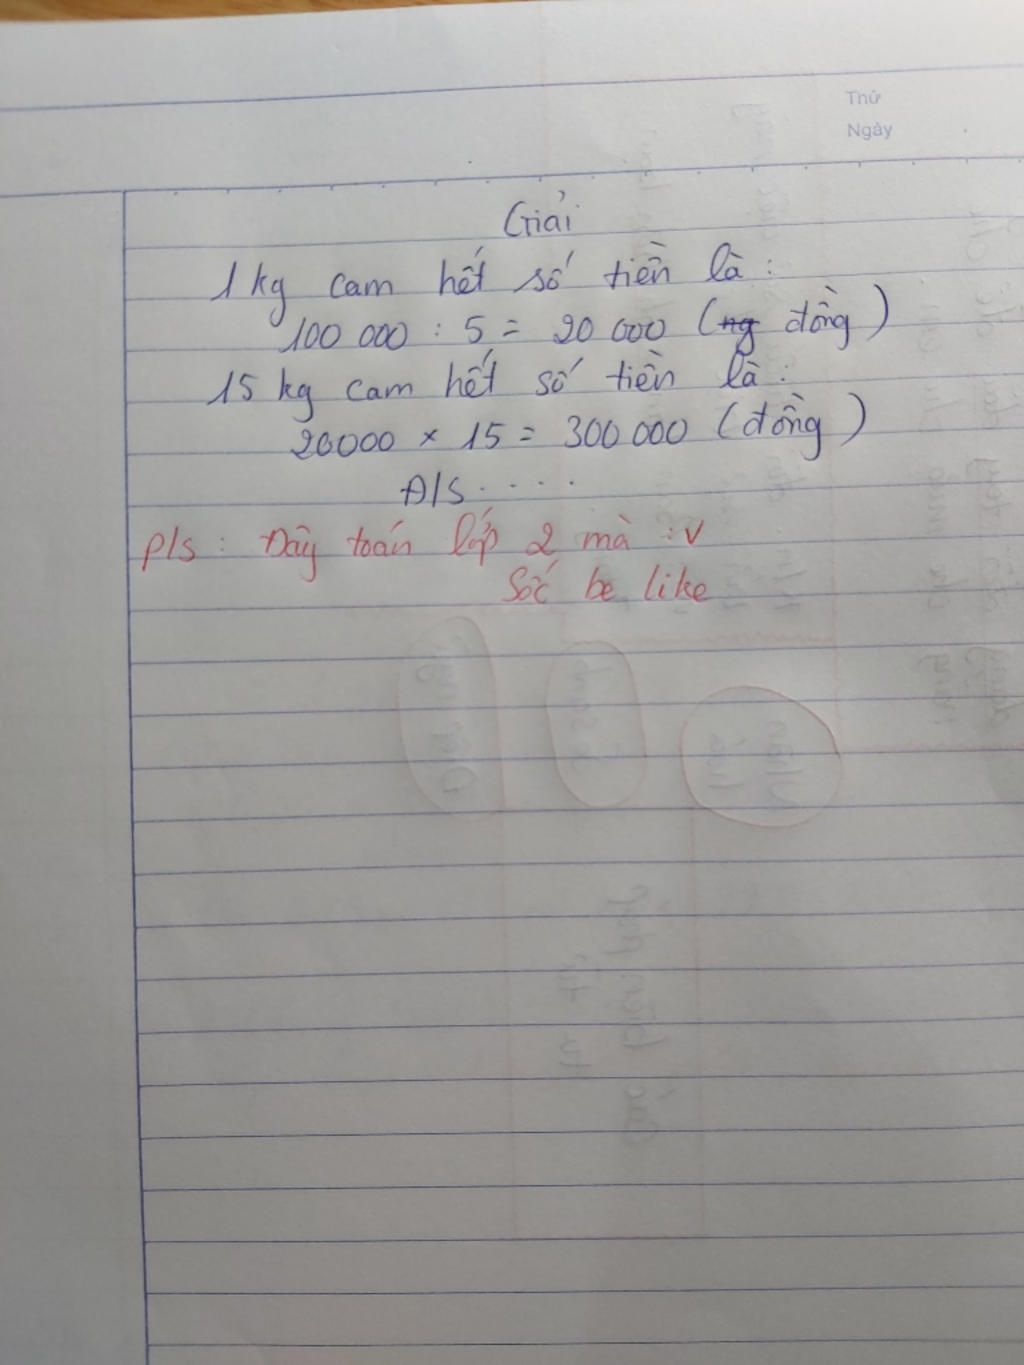 Thứ
Ngày
Giải
1 kg cam hết số tiền là :
100 000 : 5 = 20 000 (ng đồng)
15 kg cam hết số tiền là :
20000 x 15 = 300 000 (đồng)
Đ/S....
P/s : Đây toán lớp 2 mà :v
Sốc be like